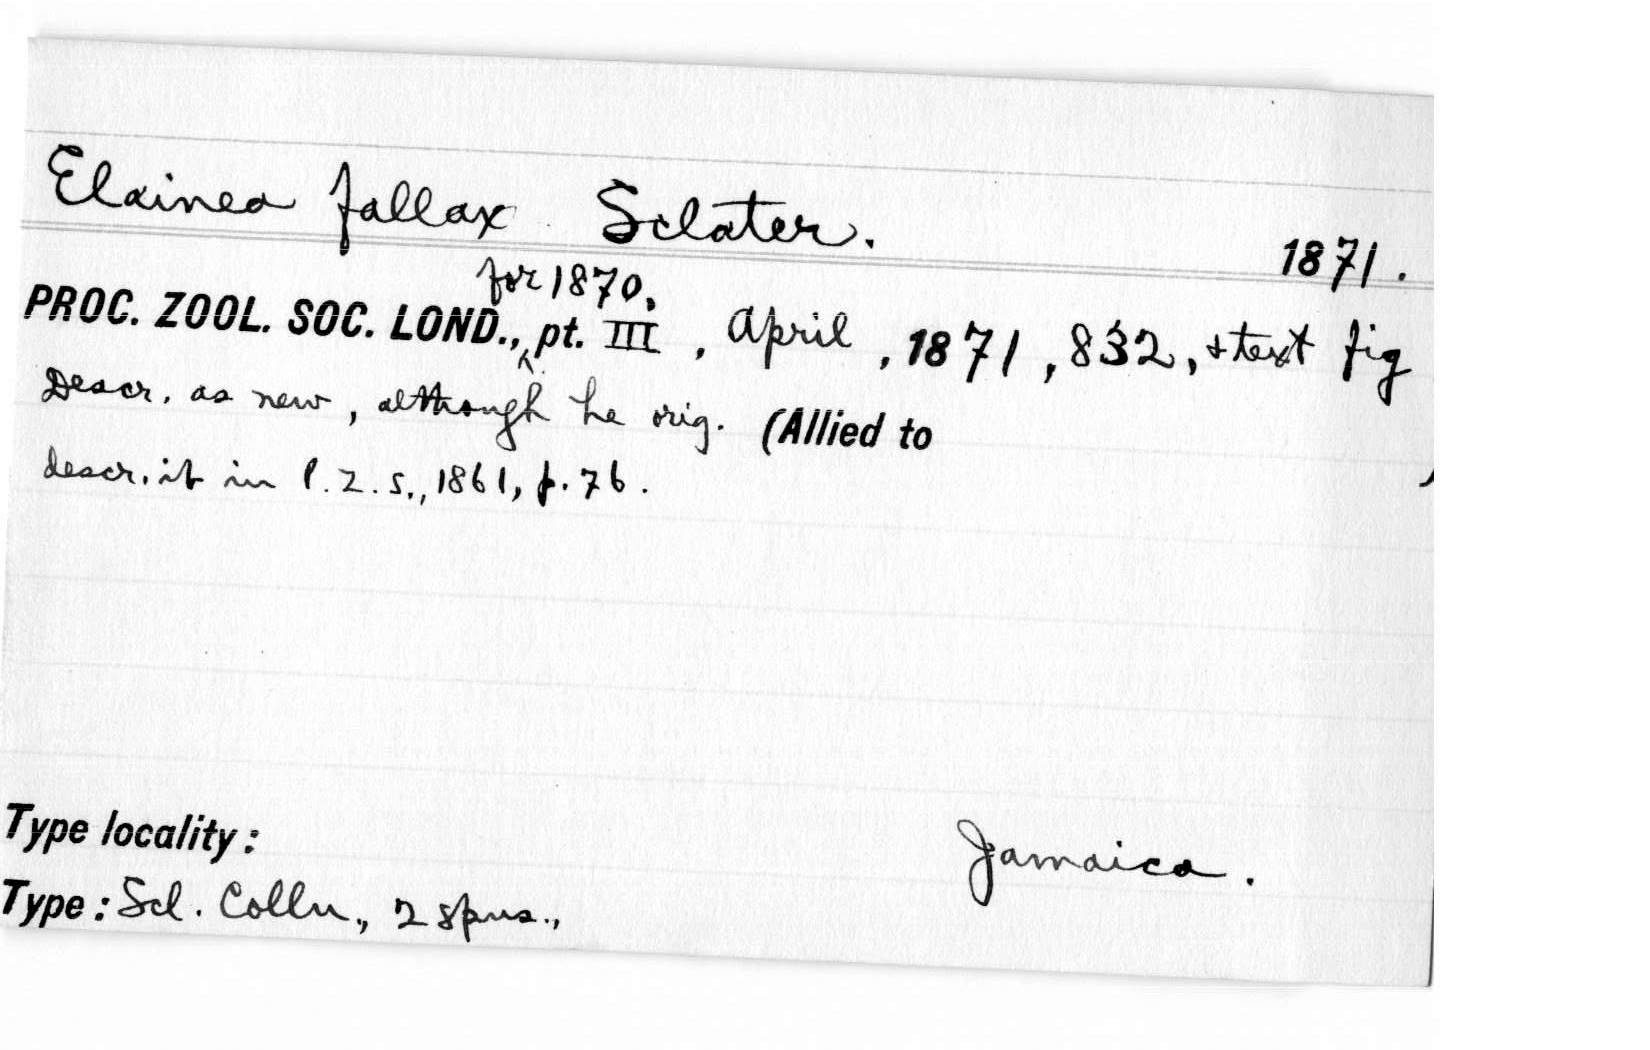 Elainea fallax Sclater.
1871.
for 1870,
PROC. ZOOL. SOC. LOND., pt. III, April, 1871, 832, + text fig
Descr. as new, although he orig. (Allied to
descr. it in P.Z.S., 1861, p. 76. )
Type locality: Jamaica.
Type: Scl. Colln., 2 spns.,